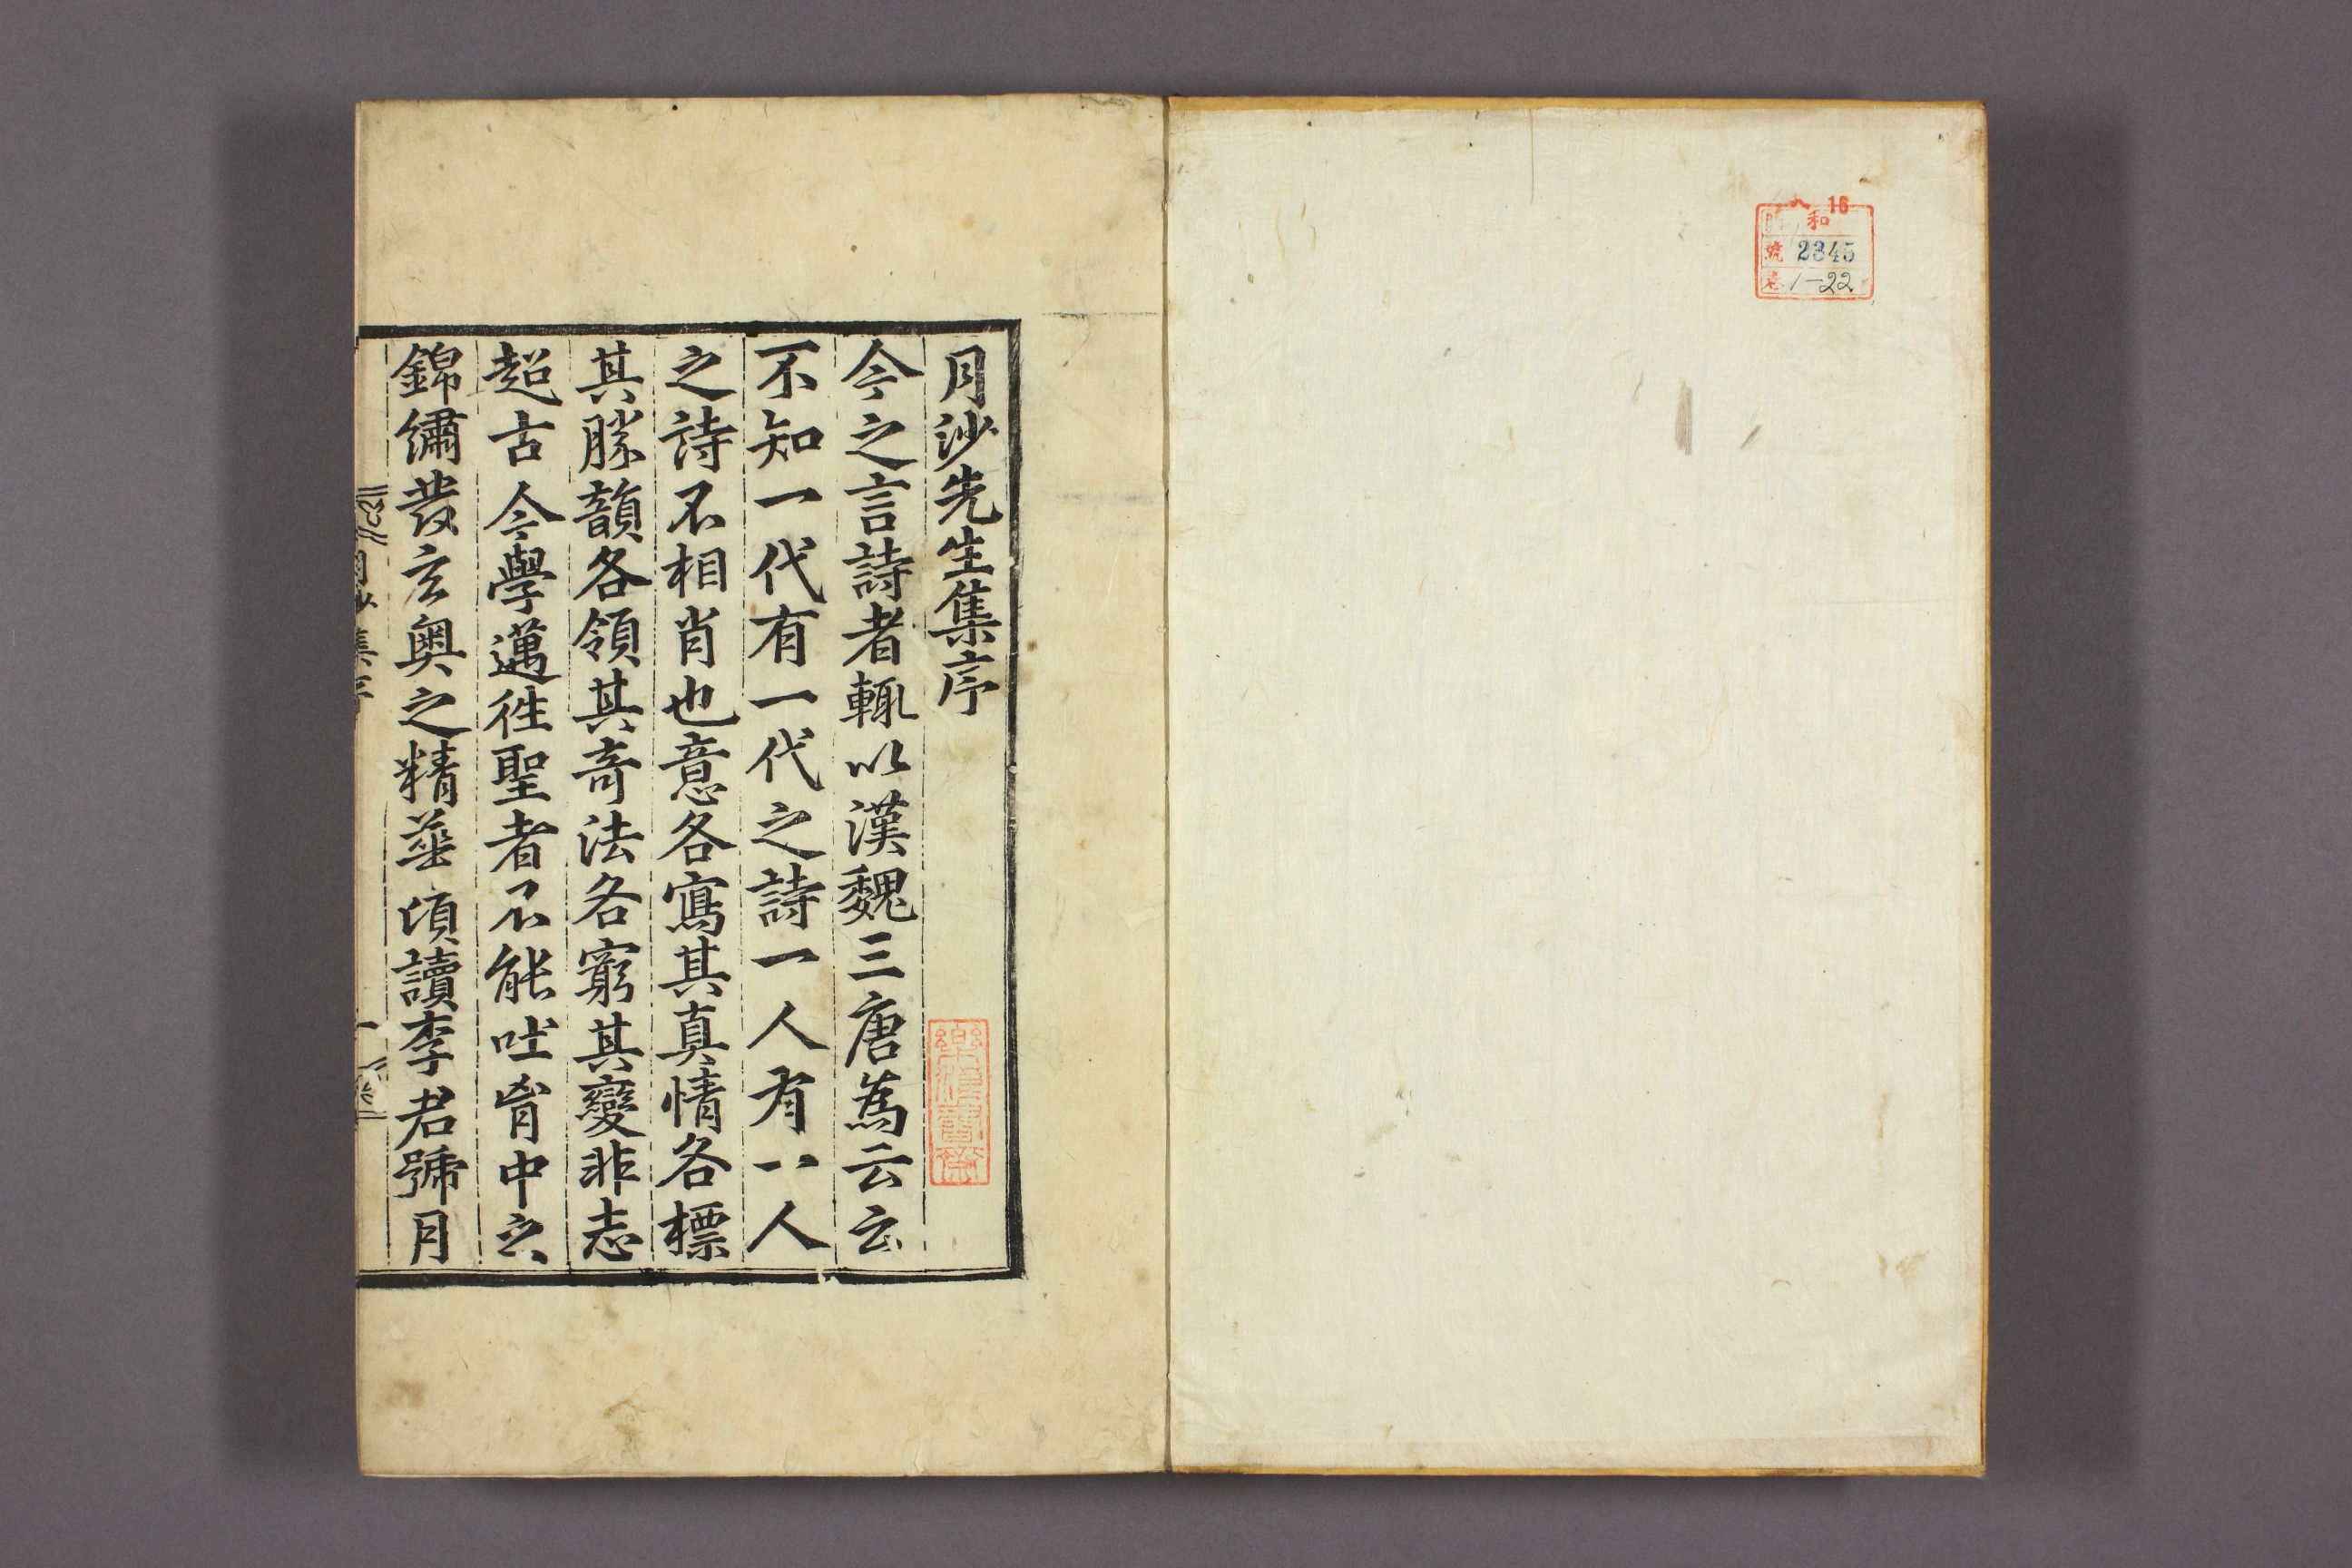 16
和
號 2345
卷 1-22
月沙先生集序
今之言詩者輒以漢魏三唐為云云
不知一代有一代之詩一人有一人
之詩不相肖也意各寫其真情各標
其勝韻各領其奇法各窮其變非志
超古今學邁徃聖者不能吐胷中之
錦繡發玄奧之精華頃讀李君號月